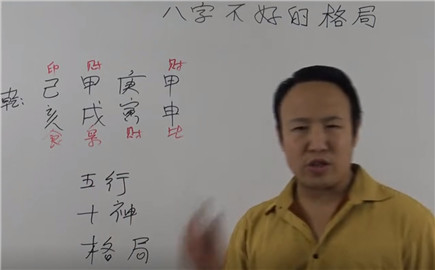 八字不好的格局
印 财 财
乾: 己 甲 庚 甲
亥 戌 寅 申
食 枭 财 比
五行
十神
格局